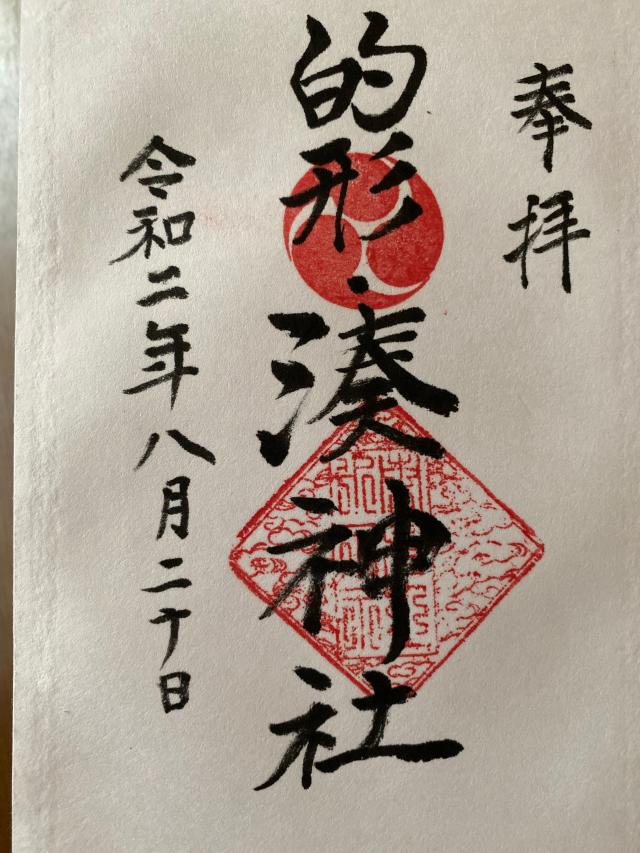 奉拝
的形・湊神社
令和二年八月二十日